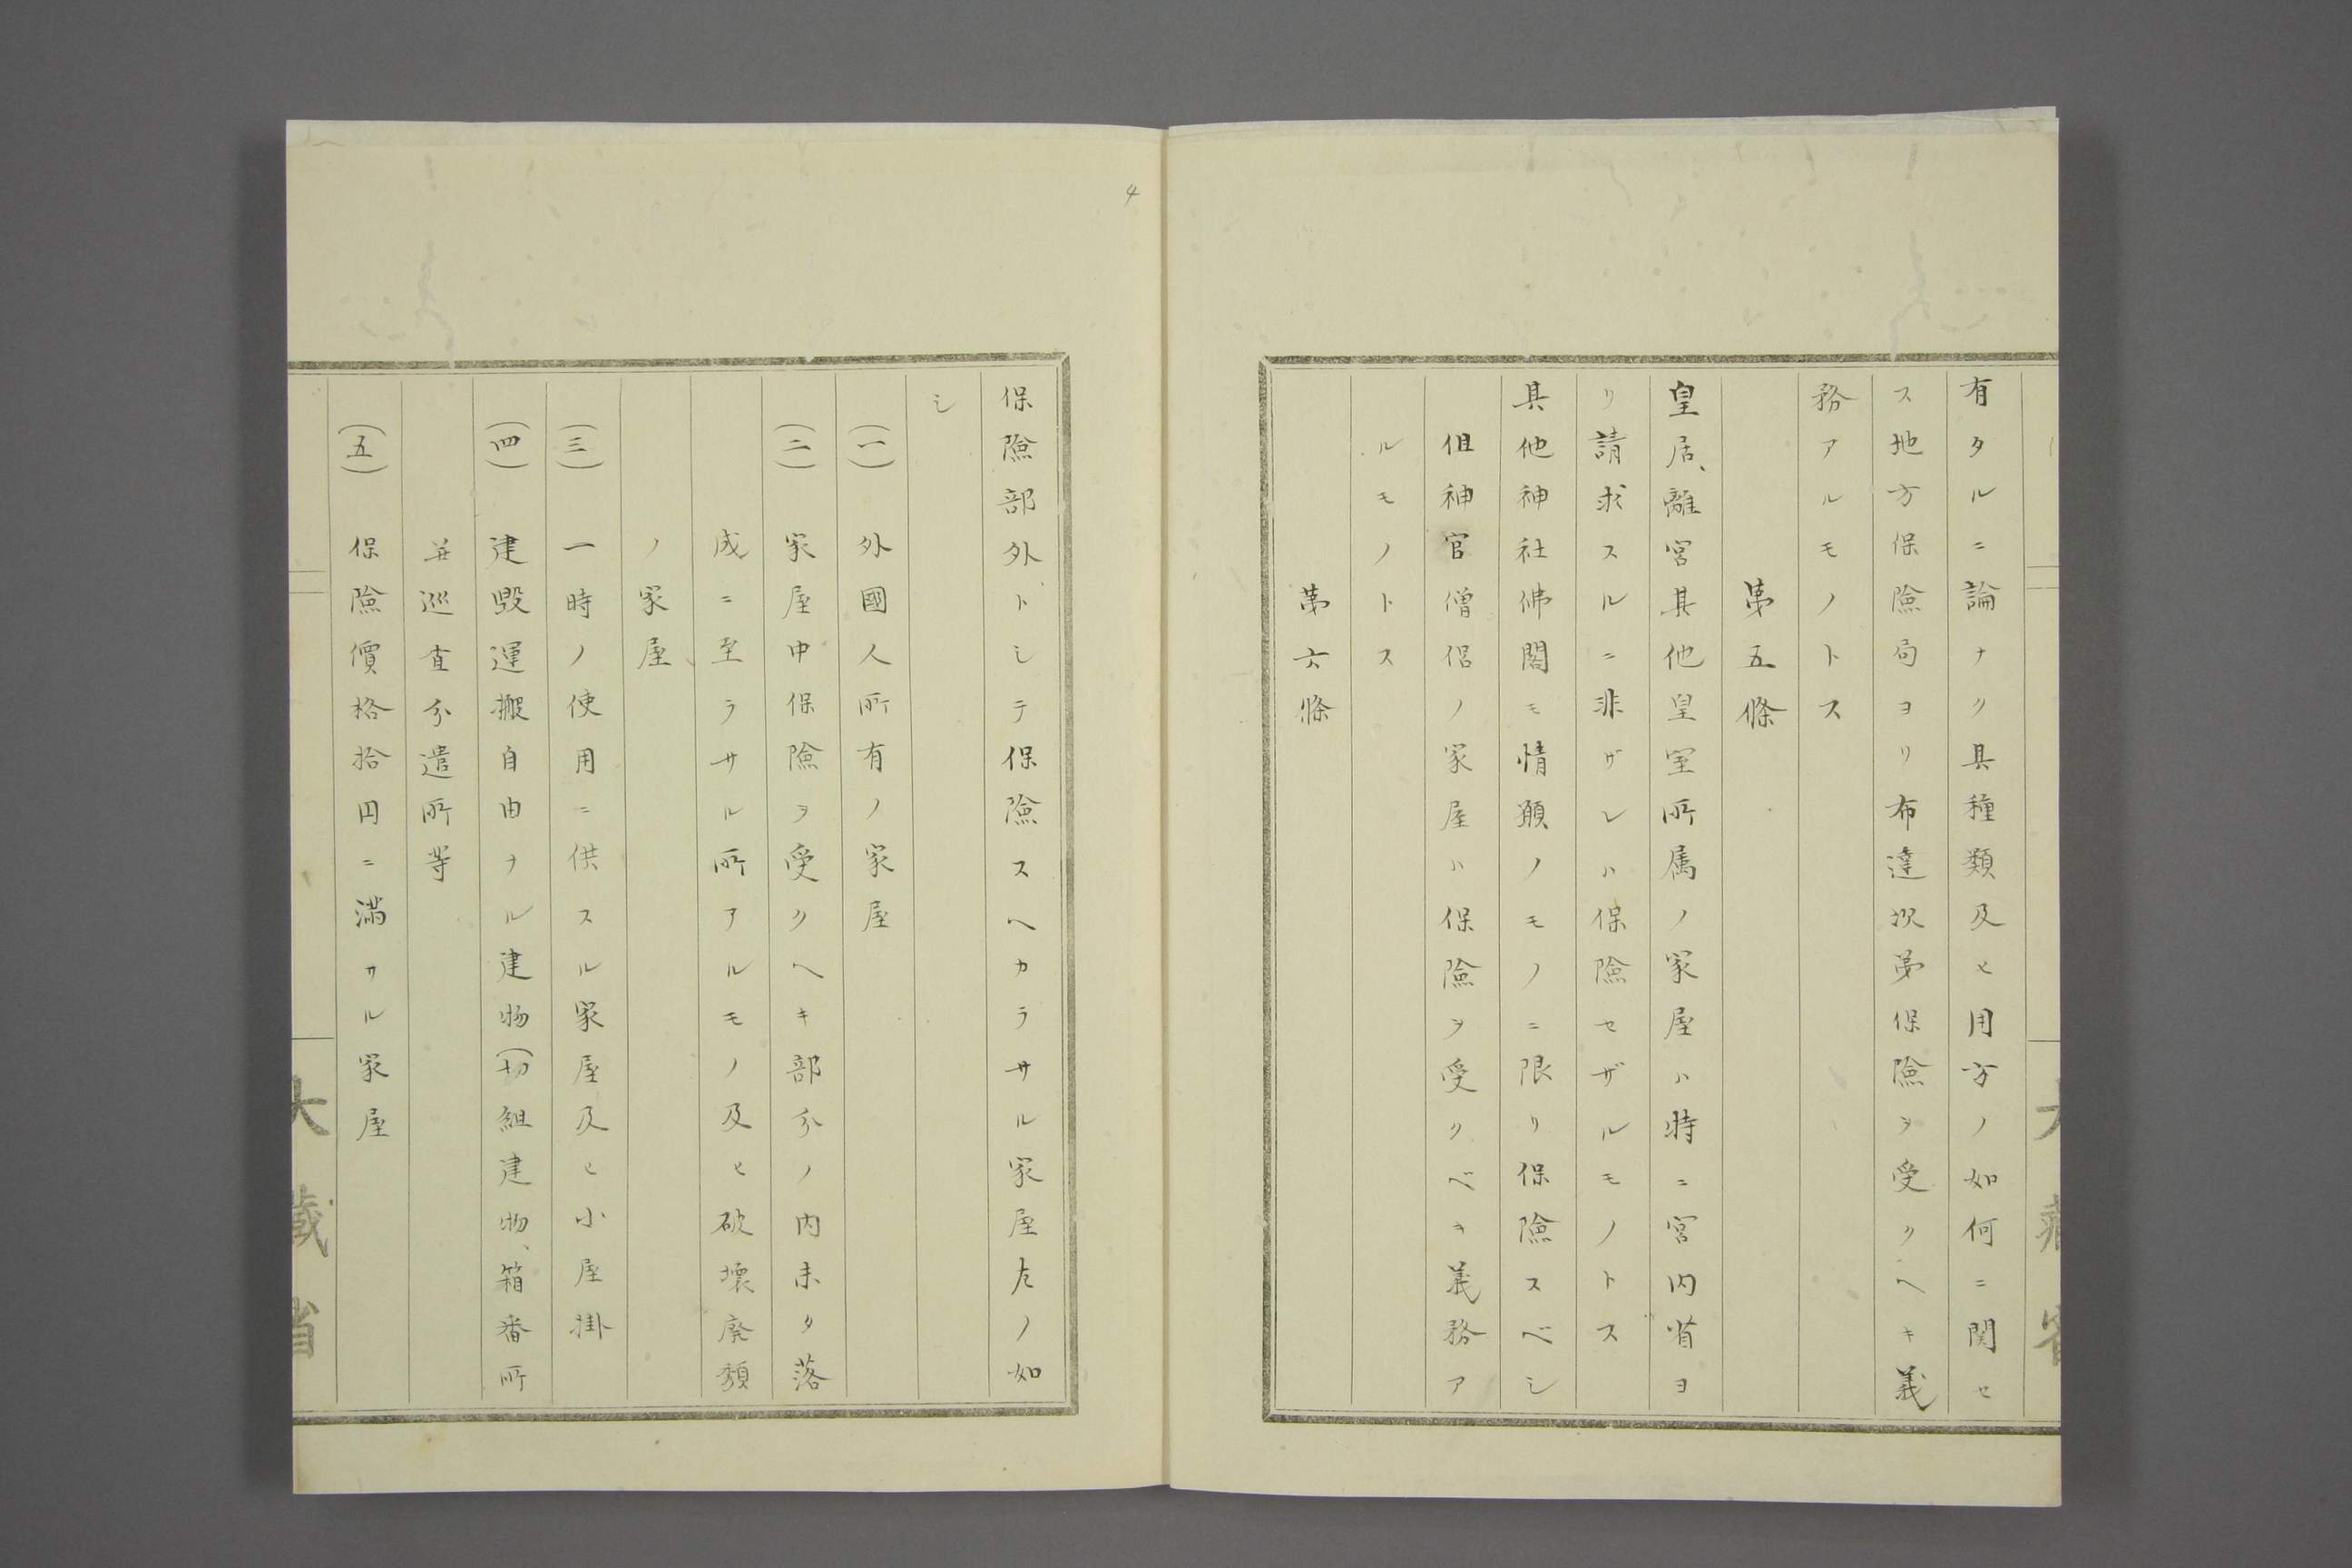 有タルニ論ナク其種類及ヒ用方ノ如何ニ関セ
ス地方保險局ヨリ布達次第保險ヲ受クヘキ義
務アルモノトス
第五條
皇居、離宮其他皇室所属ノ家屋ハ特ニ宮内省ヨ
リ請求スルニ非ザレハ保險セザルモノトス
其他神社佛閣モ情願ノモノニ限リ保險スベシ
但神官僧侶ノ家屋ハ保險ヲ受クベキ義務ア
ルモノトス
第六條
4
保險部外トシテ保險スヘカラサル家屋左ノ如
シ
(一) 外國人所有ノ家屋
(二) 家屋中保險ヲ受クヘキ部分ノ内未タ落
成ニ至ラサル所アルモノ及ヒ破壊廃頽
ノ家屋
(三) 一時ノ使用ニ供スル家屋及ヒ小屋掛
(四) 建毀運搬自由ナル建物(切組建物、箱番所
並巡査分遣所等
(五) 保險價格拾円ニ満サル家屋
大藏省